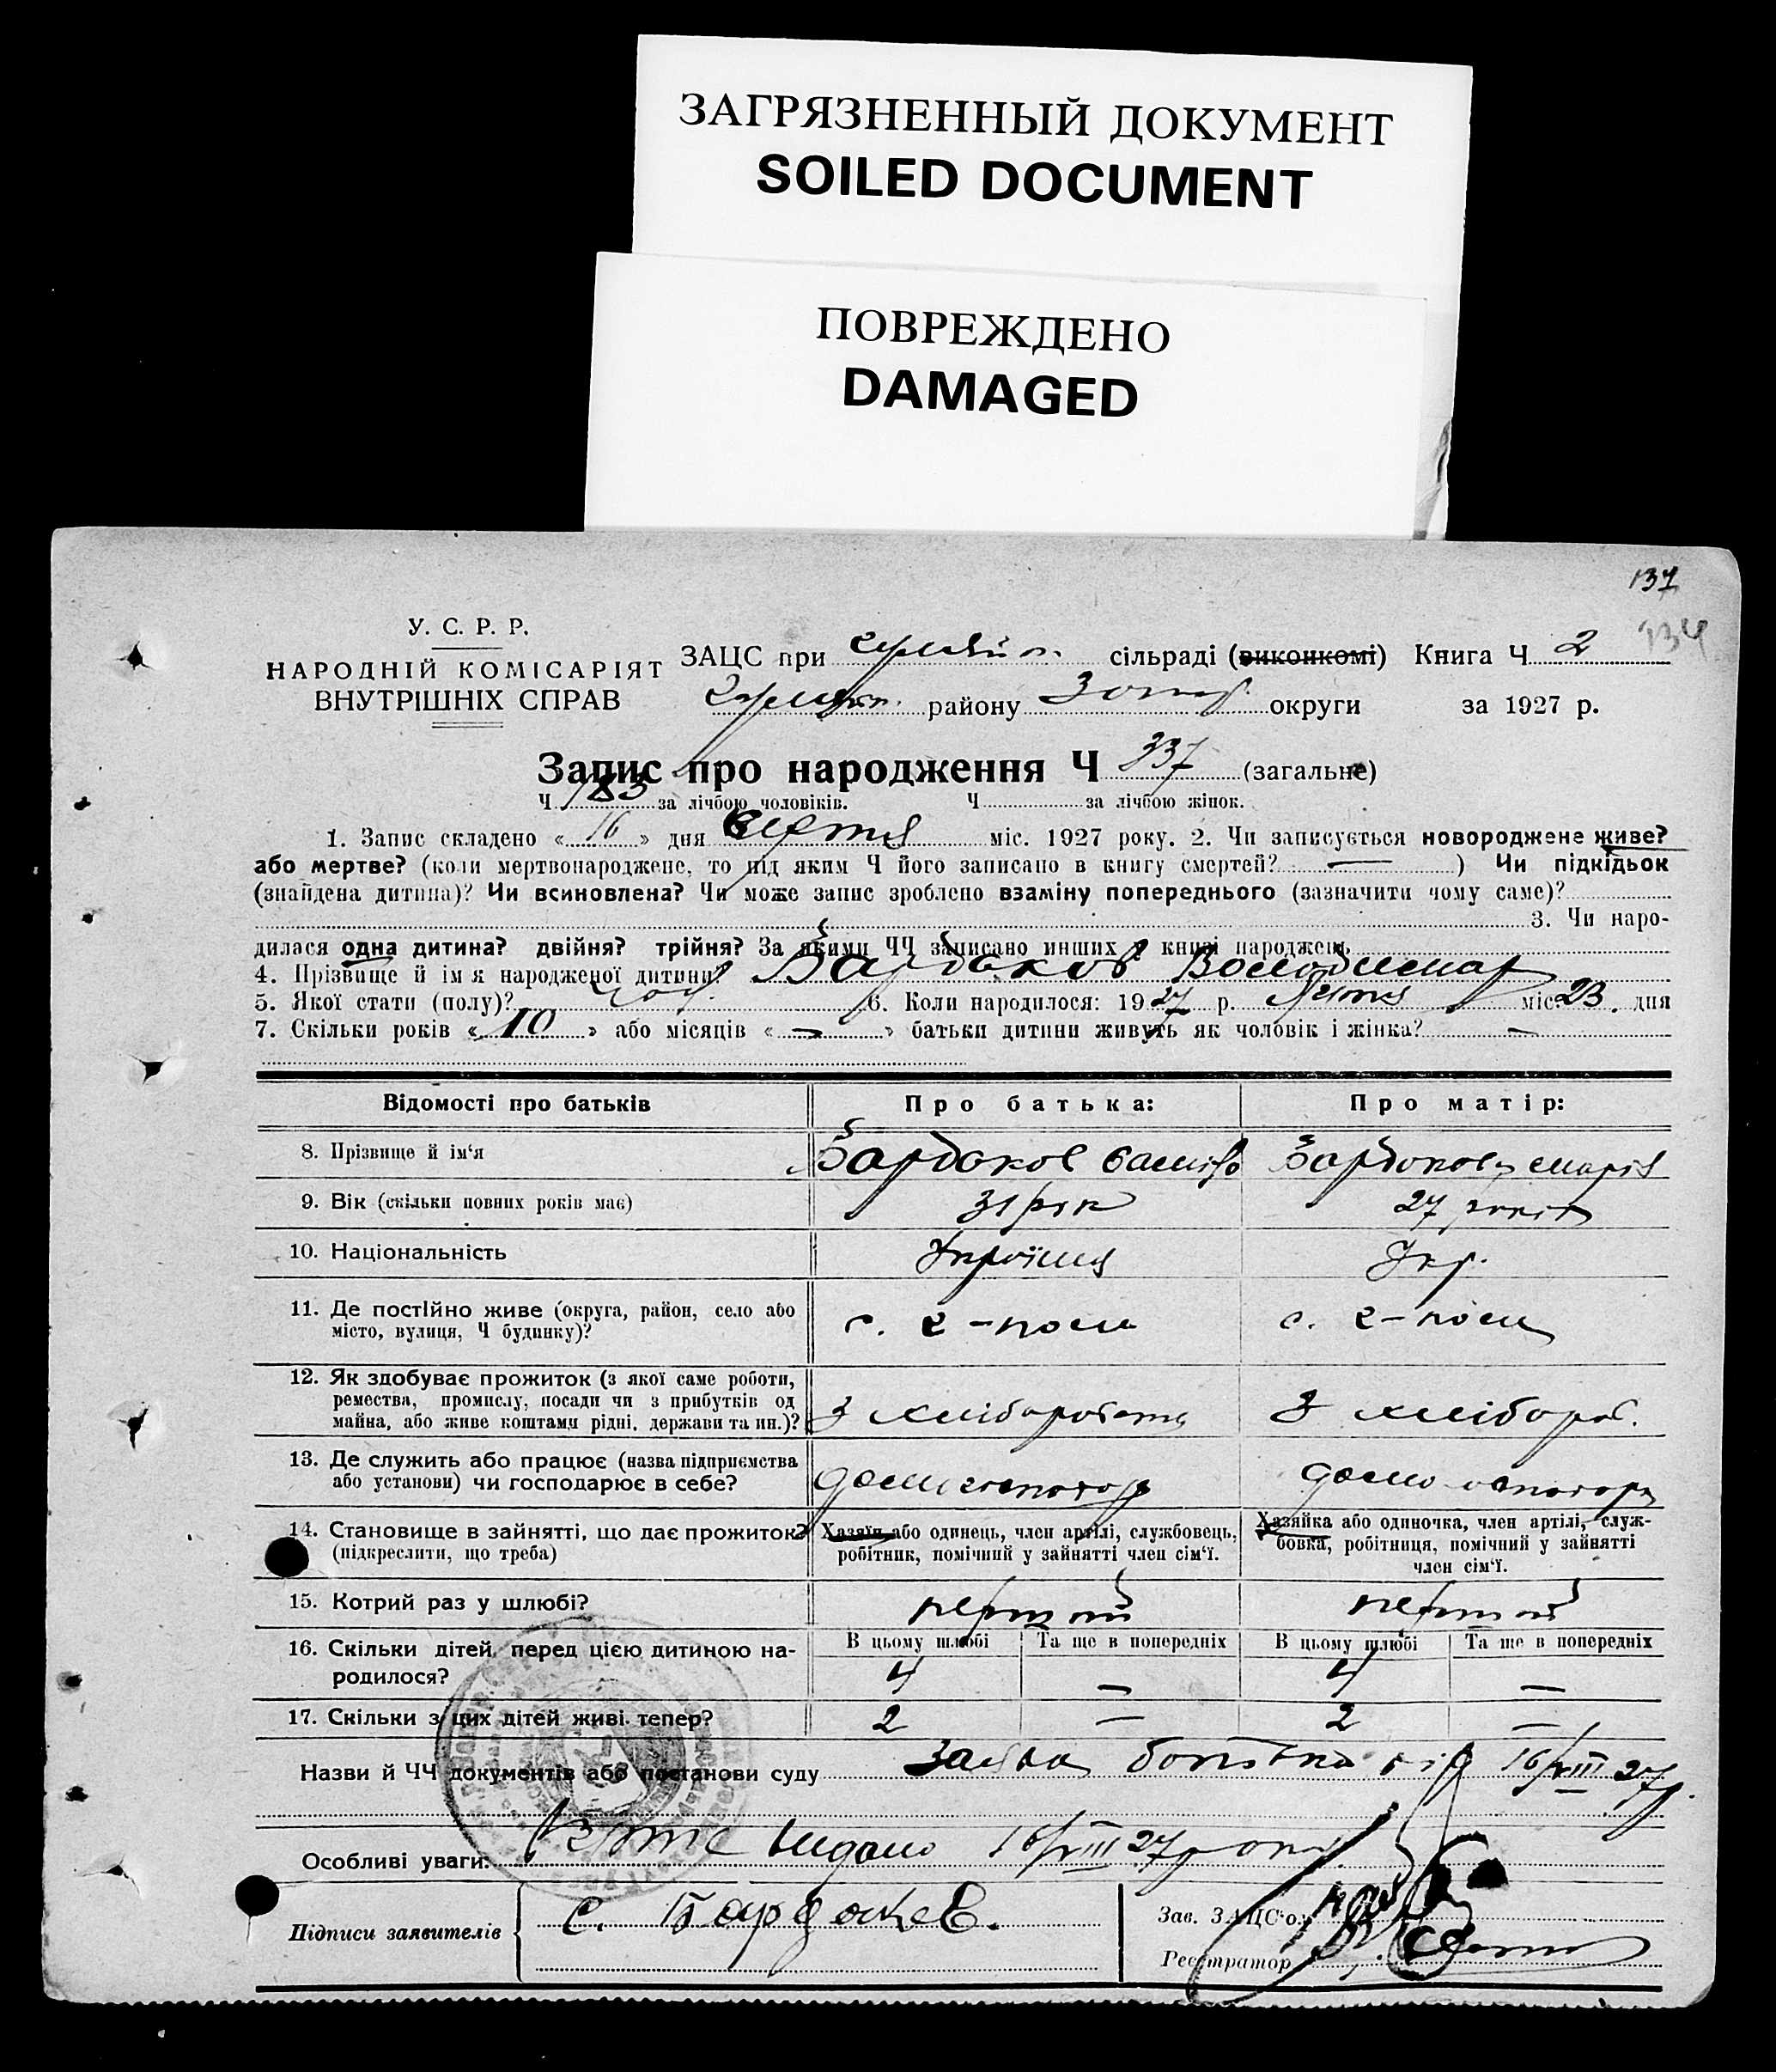 ЗАГРЯЗНЕННЫЙ ДОКУМЕНТ
SOILED DOCUMENT
ПОВРЕЖДЕНО
DAMAGED
137
134
У. С. Р. Р.
НАРОДНІЙ КОМІСАРІЯТ
ВНУТРІШНІХ СПРАВ
ЗАЦС при сільраді (виконкомі) Книга Ч 2
району округи за 1927 р.
Запис про народження Ч 337 (загальне)
Ч 183 за лічбою чоловіків. Ч за лічбою жінок.
1. Запис складено « 16 » дня серпня міс. 1927 року. 2. Чи записується новороджене живе?
або мертве? (коли мертвонароджене, то під яким Ч його записано в книгу смертей? — ) Чи підкідьок
(знайдена дитина)? Чи всиновлена? Чи може запис зроблено взаміну попереднього (зазначити чому саме)?
3. Чи наро-
дилася одна дитина? двійня? трійня? За якими ЧЧ записано инших у книзі народжень
4. Прізвище й ім я народженої дитини? Бардаков Володимир
5. Якої стати (полу)? чол. 6. Коли народилося: 1927 р. міс. 23 дня
7. Скільки років « 10 » або місяців « — » батьки дитини живуть як чоловік і жінка? —
Відомості про батьків Про батька: Про матір:
8. Прізвище й ім‘я Бардаков Бардакова Марія
9. Вік (скільки повних років має) 31 рік 27 років
10. Національність Українец Укр.
11. Де постійно живе (округа, район, село або
місто, вулиця, Ч будинку)?
12. Як здобуває прожиток (з якої саме роботи,
ремества, промислу, посади чи з прибутків од
майна, або живе коштами рідні, держави та ин.)? З хліборобства З хлібороб.
13. Де служить або працює (назва підприємства
або установи) чи господарює в себе?
14. Становище в зайнятті, що дає прожиток?
(підкреслити, що треба)
Хазяїн або одинець, член артілі, службовець,
робітник, помічний у зайнятті член сім‘ї.
Хазяйка або одиночка, член артілі, служ-
бовка, робітниця, помічний у зайнятті
член сім‘ї.
15. Котрий раз у шлюбі? перший перший
16. Скільки дітей перед цією дитиною на-
родилося?
В цьому шлюбі Та ще в попередніх В цьому шлюбі Та ще в попередніх
4 — 4 —
17. Скільки з цих дітей живі тепер? 2 — 2 —
Назви й ЧЧ документів або постанови суду Заява батька від 16/VIII 27 р.
Особливі уваги: видано 16/VIII 27 року
Підписи заявителів С. Бардаков.
Зав. ЗАЦС'ом
Реєстратор